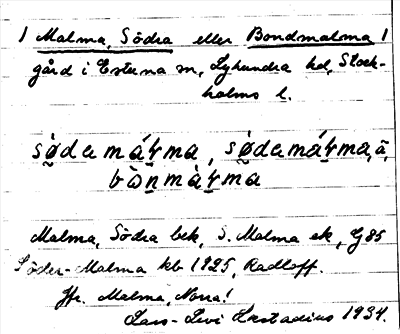 1 Malma, Södra eller Bondmalma 1
gård i Estuna sn, Lyhundra hd, Stock-
holms l.
sø̀damáɾma, sø̀damáɾma, ä,
bònmàɾma
Malma, Södra bek, S. Malma ek, G 85
Söder-Malma kb 1925, Radloff.
Jfr. Malma, Norra!
Lars-Levi Læstadius 1934.